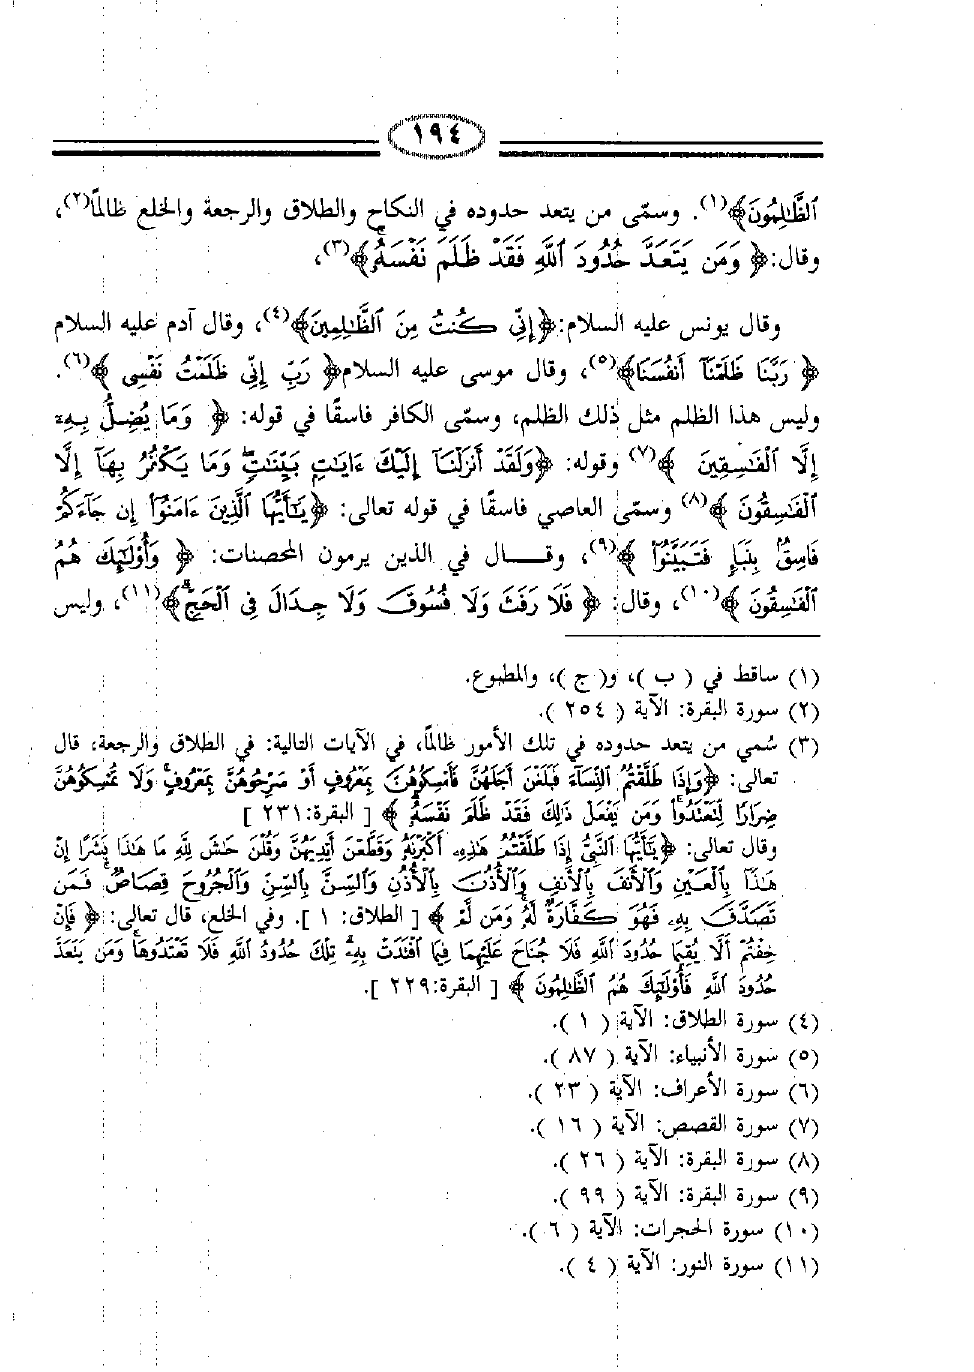 ١٩٤
ٱلظَّٰلِمُونَ﴾(١). وسمّى من يتعد حدوده في النكاح والطلاق والرجعة والخلع ظالماً(٢)،
وقال:﴿ وَمَن يَتَعَدَّ حُدُودَ ٱللَّهِ فَقَدْ ظَلَمَ نَفْسَهُۥ﴾(٣)،
وقال يونس عليه السلام:﴿إِنِّي كُنتُ مِنَ ٱلظَّٰلِمِينَ﴾(٤)، وقال آدم عليه السلام
﴿ رَبَّنَا ظَلَمْنَآ أَنفُسَنَا﴾(٥)، وقال موسى عليه السلام﴿ رَبِّ إِنِّي ظَلَمْتُ نَفْسِى ﴾(٦).
وليس هذا الظلم مثل ذلك الظلم، وسمّى الكافر فاسقًا في قوله: ﴿ وَمَا يُضِلُّ بِهِۦٓ
إِلَّا ٱلْفَٰسِقِينَ ﴾(٧) وقوله: ﴿وَلَقَدْ أَنزَلْنَآ إِلَيْكَ ءَايَٰتٍۭ بَيِّنَٰتٍۖ وَمَا يَكْفُرُ بِهَآ إِلَّا
ٱلْفَٰسِقُونَ ﴾(٨) وسمّى العاصي فاسقًا في قوله تعالى: ﴿يَٰٓأَيُّهَا ٱلَّذِينَ ءَامَنُوٓا۟ إِن جَآءَكُمْ
فَاسِقٌۢ بِنَبَإٍ فَتَبَيَّنُوٓا۟ ﴾(٩)، وقـــال في الذين يرمون المحصنات: ﴿ وَأُو۟لَٰٓئِكَ هُمُ
ٱلْفَٰسِقُونَ ﴾(١٠)، وقال: ﴿ فَلَا رَفَثَ وَلَا فُسُوقَ وَلَا جِدَالَ فِى ٱلْحَجِّۗ﴾(١١)، وليس
(١) ساقط في ( ب )، و( ج )، والمطبوع.
(٢) سورة البقرة: الآية ( ٢٥٤ ).
(٣) سُمي من يتعد حدوده في تلك الأمور ظالماً، في الآيات التالية: في الطلاق والرجعة، قال
تعالى: ﴿وَإِذَا طَلَّقْتُمُ ٱلنِّسَآءَ فَبَلَغْنَ أَجَلَهُنَّ فَأَمْسِكُوهُنَّ بِمَعْرُوفٍ أَوْ سَرِّحُوهُنَّ بِمَعْرُوفٍۚ وَلَا تُمْسِكُوهُنَّ
ضِرَارًا لِّتَعْتَدُوا۟ۚ وَمَن يَفْعَلْ ذَٰلِكَ فَقَدْ ظَلَمَ نَفْسَهُۥ ﴾ [ البقرة:٢٣١ ]
وقال تعالى: ﴿يَٰٓأَيُّهَا ٱلنَّبِيُّ إِذَا طَلَّقْتُمُ هَٰذِهِۦ أَكْبَرْنَهُۥ وَقَطَّعْنَ أَيْدِيَهُنَّ وَقُلْنَ حَٰشَ لِلَّهِ مَا هَٰذَا بَشَرًا إِنْ
هَٰذَآ بِٱلْعَيْنِ وَٱلْأَنفَ بِٱلْأَنفِ وَٱلْأُذُنَ بِٱلْأُذُنِ وَٱلسِّنَّ بِٱلسِّنِّ وَٱلْجُرُوحَ قِصَاصٌۚ فَمَن
تَصَدَّقَ بِهِۦ فَهُوَ كَفَّارَةٌ لَّهُۥۚ وَمَن لَّمْ ﴾ [ الطلاق: ١ ]. وفي الخلع، قال تعالى: ﴿ فَإِنْ
خِفْتُمْ أَلَّا يُقِيمَا حُدُودَ ٱللَّهِ فَلَا جُنَاحَ عَلَيْهِمَا فِيمَا ٱفْتَدَتْ بِهِۦۗ تِلْكَ حُدُودُ ٱللَّهِ فَلَا تَعْتَدُوهَاۚ وَمَن يَتَعَدَّ
حُدُودَ ٱللَّهِ فَأُو۟لَٰٓئِكَ هُمُ ٱلظَّٰلِمُونَ ﴾ [ البقرة:٢٢٩ ].
(٤) سورة الطلاق: الآية ( ١ ).
(٥) سورة الأنبياء: الآية ( ٨٧ ).
(٦) سورة الأعراف: الآية ( ٢٣ ).
(٧) سورة القصص: الآية ( ١٦ ).
(٨) سورة البقرة: الآية ( ٢٦ ).
(٩) سورة البقرة: الآية ( ٩٩ ).
(١٠) سورة الحجرات: الآية ( ٦ ).
(١١) سورة النور: الآية ( ٤ ).